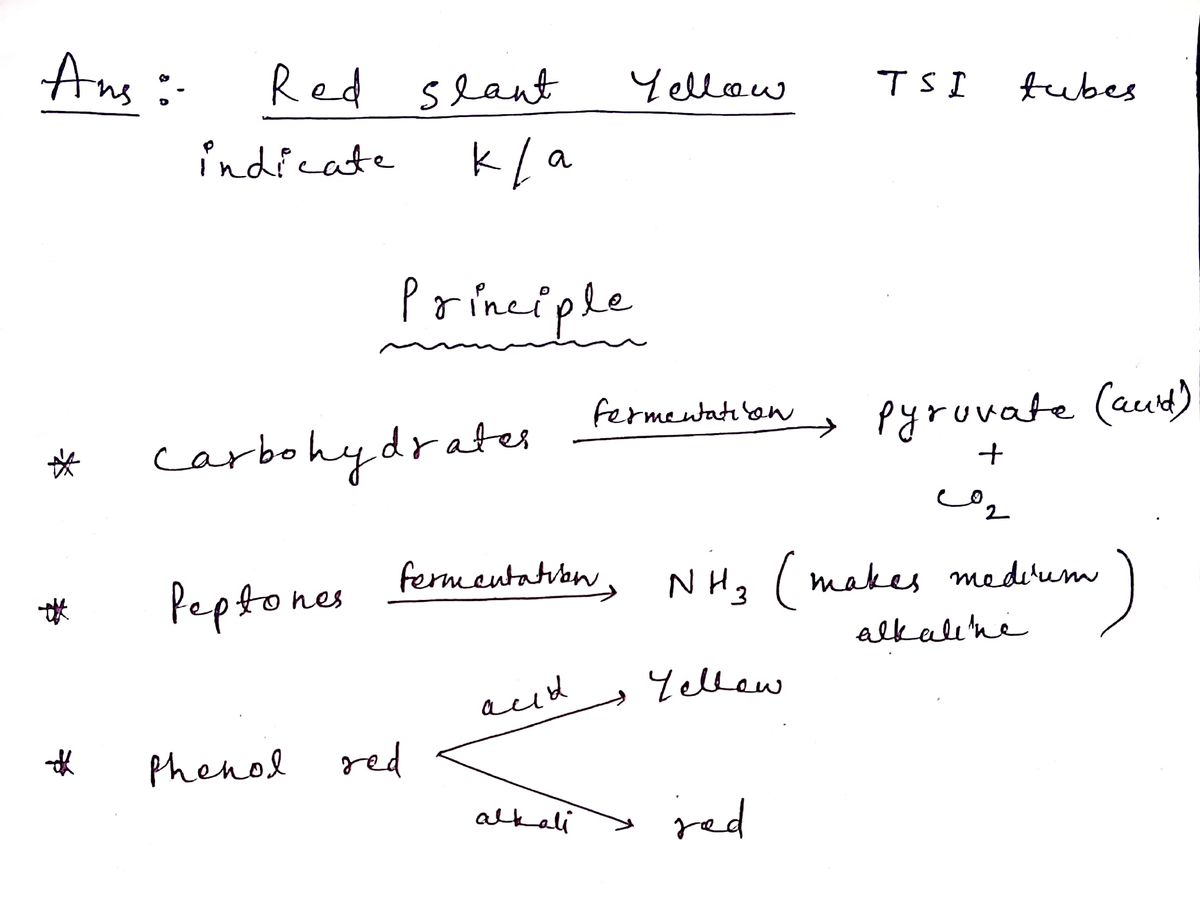 Ans :- Red slant Yellow TSI tubes
indicate k/a
Principle
* Carbohydrates fermentation → pyruvate (acid)
+
CO2
* Peptones fermentation → NH3 (makes medium
alkaline)
acid → Yellow
* Phenol red
alkali → red